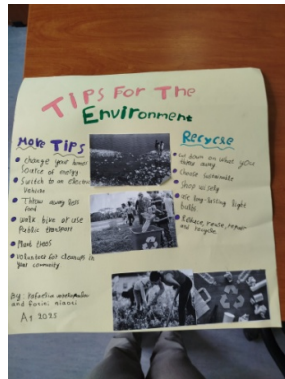 TIPS FOR THE
Environment
More TIPS
change your homes
source of energy
Switch to an electric
Vehicle
Throw away less
food
walk bike or use
Public transport
Plant trees
volunteer for cleanups in
your community
Recycle
cut down on what you
throw away
choose sustainable
shop wisely
use long-lasting light
bulbs
Reduce, reuse, repair
and recycle
By: Rafaelia
and
A1 2025